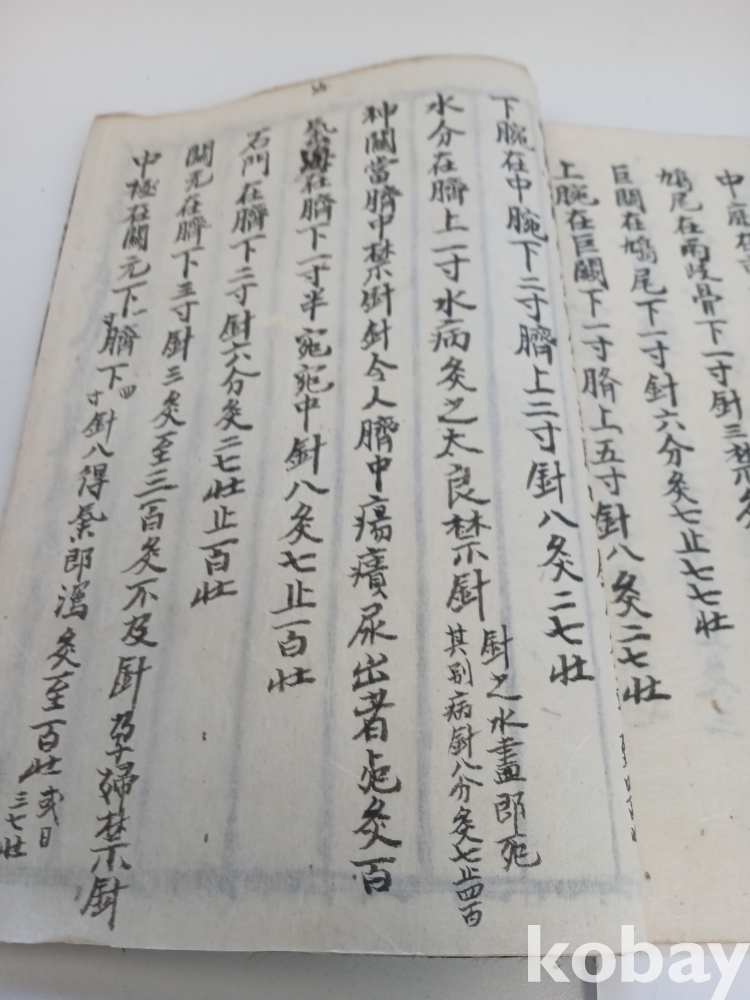 鳩尾在兩歧骨下一寸針三禁灸
巨闕在鳩尾下一寸針六分灸七止七七壯
上腕在巨闕下一寸臍上五寸針八灸二七壯
下腕在中腕下二寸臍上二寸針八灸二七壯
水分在臍上一寸水病灸之太良禁針 針之水盡即死 其別病針八分灸七止四百
神闕當臍中禁針針令人臍中瘍潰尿出者死灸百
氣海在臍下一寸半宛宛中針八灸七止百壯
石門在臍下二寸針六分灸二七壯止一百壯
關元在臍下三寸針三灸至三百灸不及針孕婦禁針
中極在關元下一寸臍下四寸針八得氣即瀉灸至百壯或日三七壯
kobay